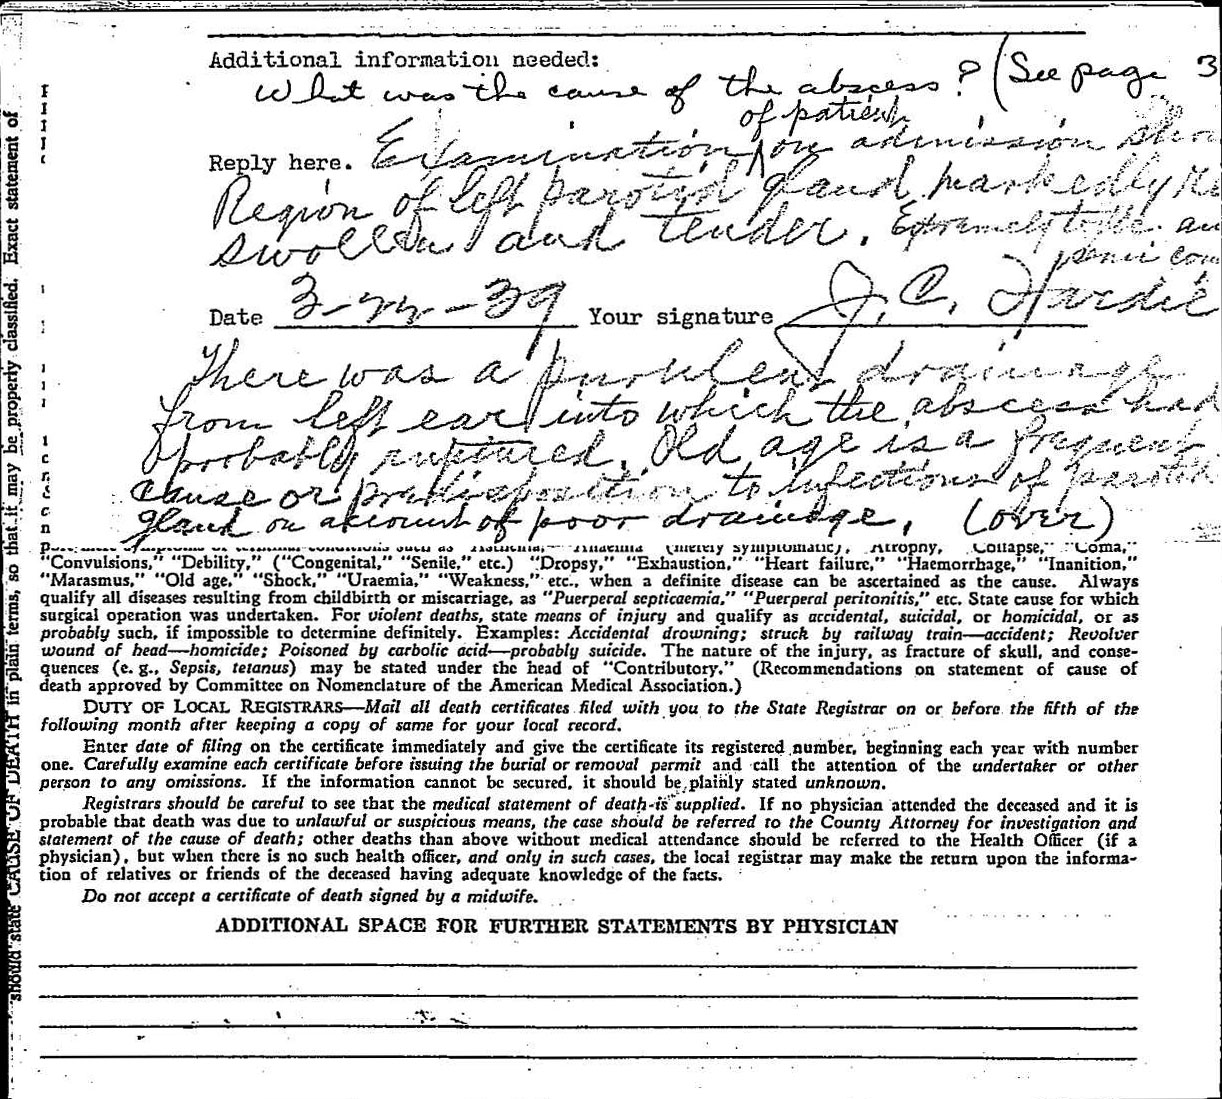 Additional information needed:
What was the cause of the abscess? (See page 3
of patient
Reply here. Examination on admission
Region of left parotid gland markedly
swollen and tender. Extremely
Date 3-22-39 Your signature J. C. Hardie
There was a purulent drainage
from left ear into which the abscess had
probably ruptured. Old age is a frequent
cause or predisposition to infections of parotid
gland on account of poor drainage. (over)
"Convulsions," "Debility," ("Congenital," "Senile," etc.) "Dropsy," "Exhaustion," "Heart failure," "Haemorrhage," "Inanition,"
"Marasmus," "Old age," "Shock," "Uraemia," "Weakness," etc., when a definite disease can be ascertained as the cause. Always
qualify all diseases resulting from childbirth or miscarriage, as "Puerperal septicaemia," "Puerperal peritonitis," etc. State cause for which
surgical operation was undertaken. For violent deaths, state means of injury and qualify as accidental, suicidal, or homicidal, or as
probably such, if impossible to determine definitely. Examples: Accidental drowning; struck by railway train—accident; Revolver
wound of head—homicide; Poisoned by carbolic acid—probably suicide. The nature of the injury, as fracture of skull, and conse-
quences (e. g., Sepsis, tetanus) may be stated under the head of "Contributory." (Recommendations on statement of cause of
death approved by Committee on Nomenclature of the American Medical Association.)
DUTY OF LOCAL REGISTRARS—Mail all death certificates filed with you to the State Registrar on or before the fifth of the
following month after keeping a copy of same for your local record.
Enter date of filing on the certificate immediately and give the certificate its registered number, beginning each year with number
one. Carefully examine each certificate before issuing the burial or removal permit and call the attention of the undertaker or other
person to any omissions. If the information cannot be secured, it should be plainly stated unknown.
Registrars should be careful to see that the medical statement of death is supplied. If no physician attended the deceased and it is
probable that death was due to unlawful or suspicious means, the case should be referred to the County Attorney for investigation and
statement of the cause of death; other deaths than above without medical attendance should be referred to the Health Officer (if a
physician), but when there is no such health officer, and only in such cases, the local registrar may make the return upon the informa-
tion of relatives or friends of the deceased having adequate knowledge of the facts.
Do not accept a certificate of death signed by a midwife.
ADDITIONAL SPACE FOR FURTHER STATEMENTS BY PHYSICIAN
should state CAUSE OF DEATH in plain terms, so that it may be properly classified. Exact statement of